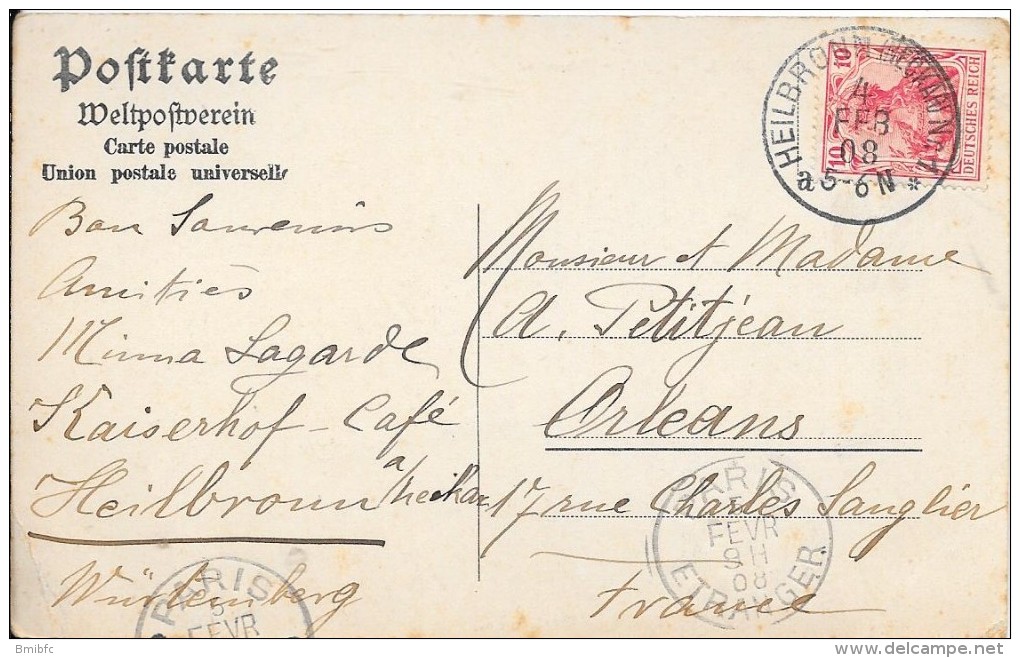 Postkarte
Weltpostverein
Carte postale
Union postale universelle
HEILBRONN (NECKAR) N
4
FEB
08
a 5-6 N *
10
10
DEUTSCHES REICH
Bon Souvenirs
Amitiés
Minna Lagarde
Kaiserhof - Café
Heilbronn a/Neckar
Würtemberg
Monsieur et Madame
A. Petitjean
Orleans
17 rue Charles Sanglier
France
PARIS
5
FEVR
9 H
08
ETRANGER
PARIS
5
FEVR
Bmibfc
www.delcampe.net